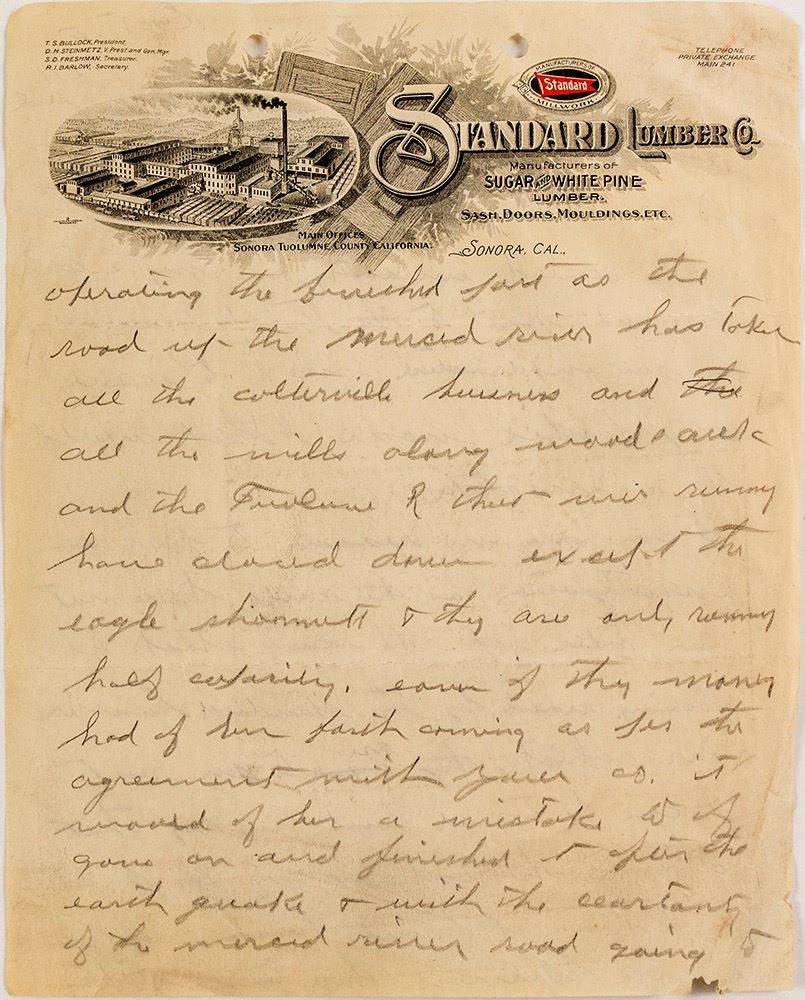 T. S. BULLOCK, President,
D. H. STEINMETZ, V. Prest and Gen. Mgr.
S. D. FRESHMAN, Treasurer.
R. I. BARLOW, Secretary.
TELEPHONE
PRIVATE EXCHANGE
MAIN 241
MANUFACTURERS OF
Standard
MILLWORK
STANDARD LUMBER CO.
Manufacturers of
SUGAR AND WHITE PINE
LUMBER.
SASH, DOORS, MOULDINGS, ETC.
MAIN OFFICES
SONORA TUOLUMNE COUNTY CALIFORNIA.
SONORA, CAL.,
operating the finished part as the
road up the Merced river has taken
all the colterville buisness and the
all the mills along woods
and the Tuolume R that wer runny
have closed down except the
eagle shommutt & they are only runny
half capasity. even if they money
had of ben forth coming as per the
agreement with your co. it
would of ben a mistake to of
gone on and finished & after the
earth quake & with the ceartanty
of the merced river road going to